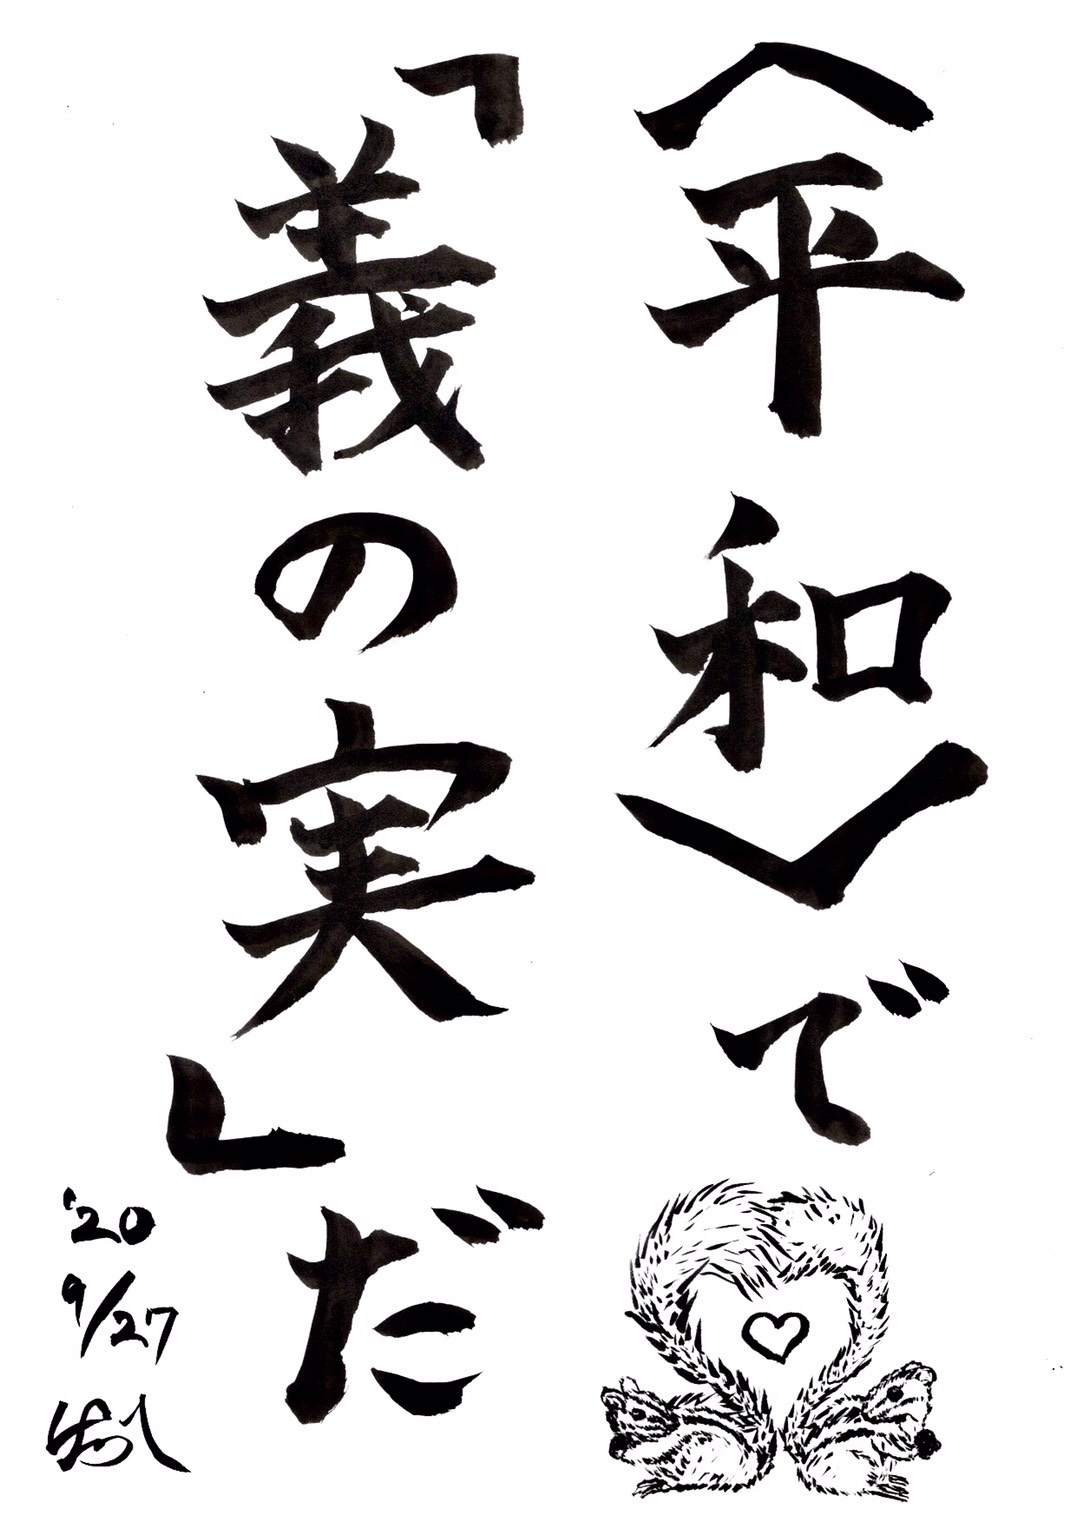 〈平和〉で
「義の実」だ
'20
9/27